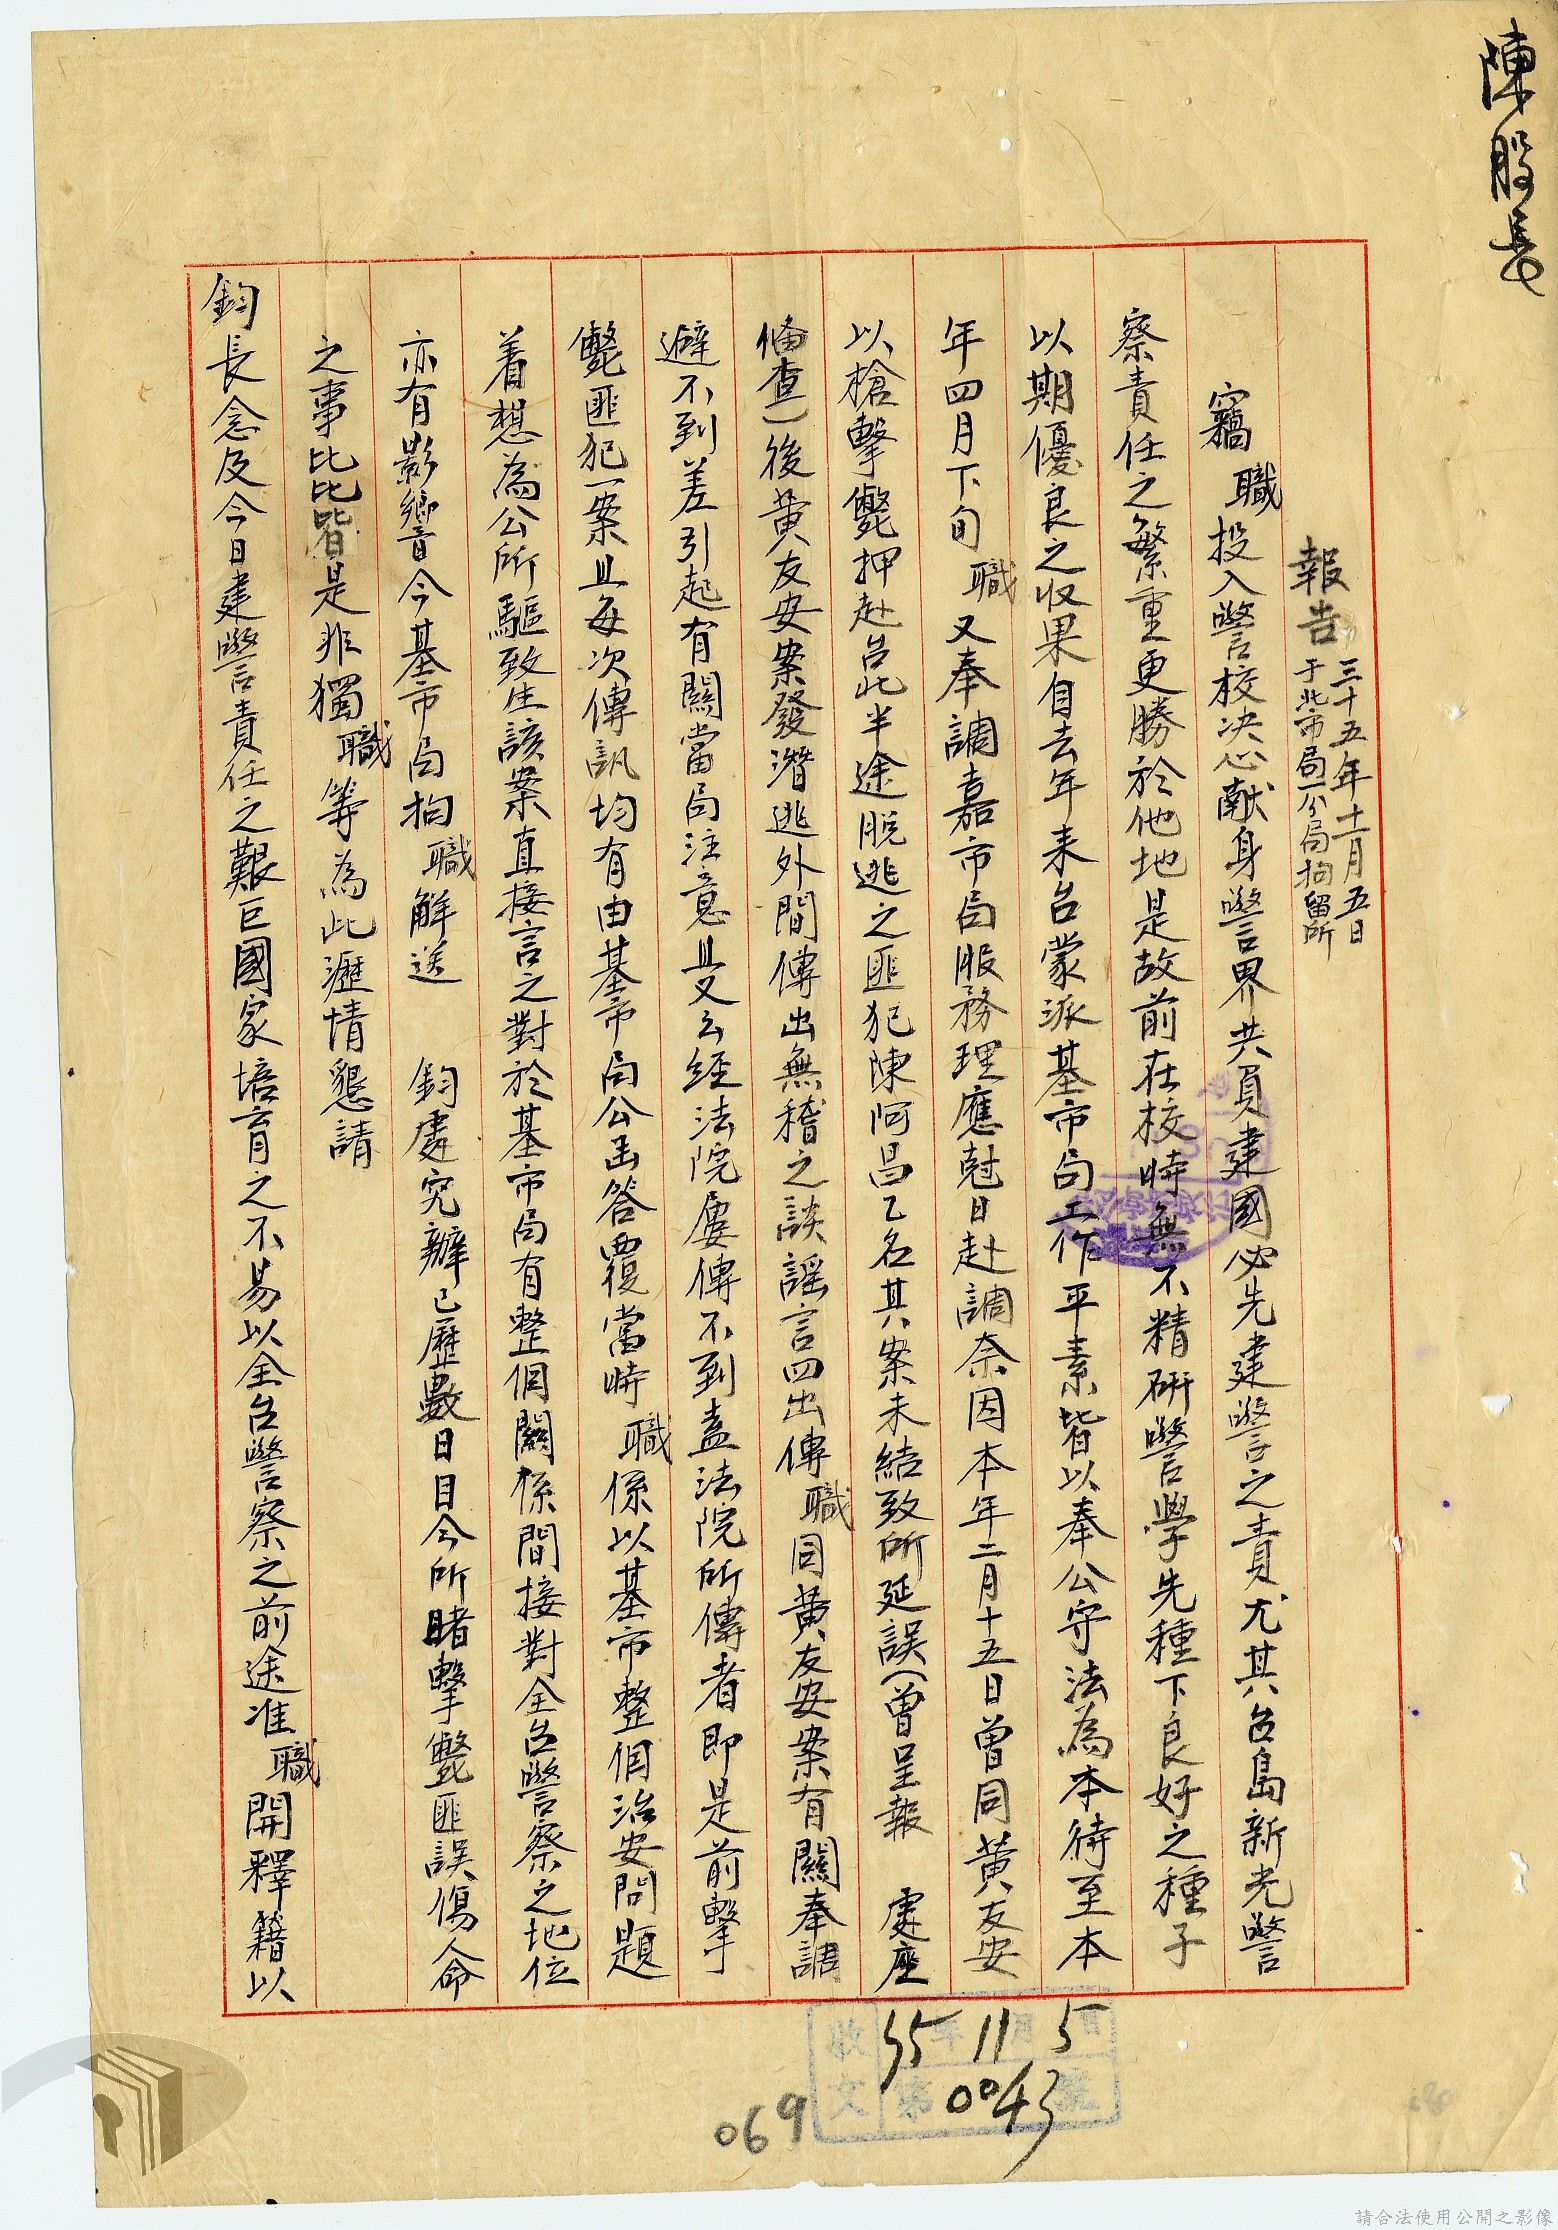 陳股長
報告 三十五年十一月五日
于北市局一分局拘留所
竊職投入警校決心献身警界共負建國必先建警之責尤其台島新光警
察責任之繁重更勝於他地是故前在校時無不精研警學先種下良好之種子
以期優良之收果自去年来台蒙派基市局工作平素皆以奉公守法為本待至本
年四月下旬職又奉調嘉市局服務理應尅日赴調奈因本年二月十五日曾同黄友安
以槍擊斃押赴台北半途脱逃之匪犯陳阿昌乙名其案未結致所延誤(曾呈報 處座
俻查)後黄友安案發潛逃外間傳出無稽之談謠言四出傳職因黄友安案有關奉調
避不到差引起有關當局注意且又云経法院屢傳不到盖法院所傳者即是前擊
斃匪犯一案且每次傳訊均有由基市局公函答覆當時職係以基市整個治安問題
着想為公所驅致生該案直接言之對於基市局有整個關係間接對全台警察之地位
亦有影響今基市局拘職解送 鈞處究辦已歷數日目今所睹擊斃匪誤傷命
之事比比皆是非獨職等為此瀝情懇請
鈞長念及今日建警責任之艱巨國家培育之不易以全台警察之前途准職開釋藉以
收文 年 月 日
第 號
35 11 5
0043
069
請合法使用公開之影像